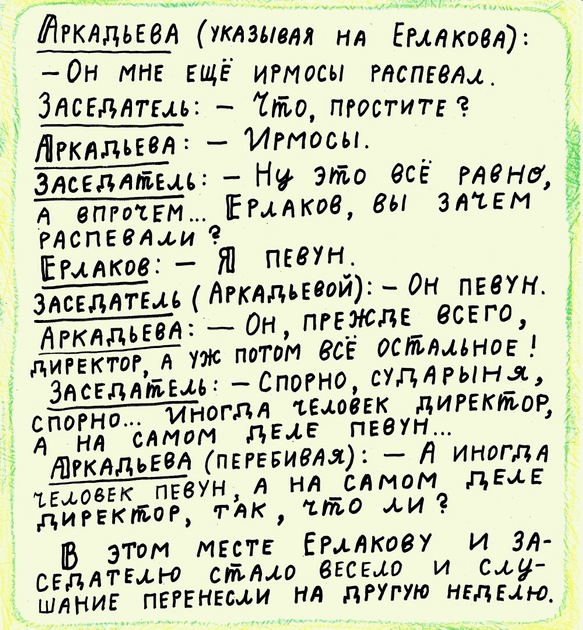 Аркадьева (указывая на Ерлакова):
– Он мне ещё ирмосы распевал.
Заседатель: – Что, простите?
Аркадьева: – Ирмосы.
Заседатель: – Ну это всё равно,
а впрочем... Ерлаков, вы зачем
распевали?
Ерлаков: – Я певун.
Заседатель (Аркадьевой): – Он певун.
Аркадьева: – Он, прежде всего,
директор, а уж потом всё остальное!
Заседатель: – Спорно, сударыня,
спорно... Иногда человек директор,
а на самом деле певун...
Аркадьева (перебивая): – А иногда
человек певун, а на самом деле
директор, так, что ли?
В этом месте Ерлакову и за-
седателю стало весело и слу-
шание перенесли на другую неделю.